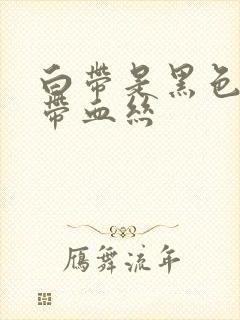 白帶是黑色
帶血絲
鴈舞流年